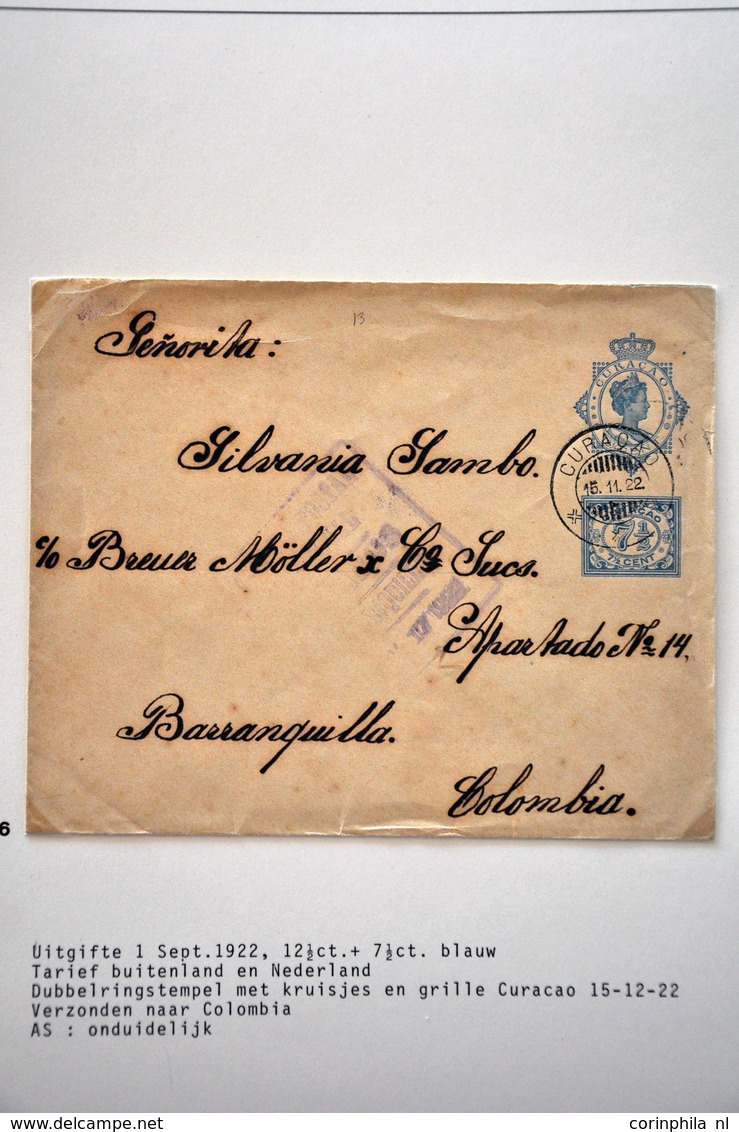 13
Señorita:
CURAÇAO
Silvania Sambo.
CURAÇAO
15.11.22.
c/o Breuer Möller x Co Sucs.
7½
7½ CENT
Apartado No 14.
Barranquilla.
Colombia.
6
Uitgifte 1 Sept.1922, 12½ct.+ 7½ct. blauw
Tarief buitenland en Nederland
Dubbelringstempel met kruisjes en grille Curacao 15-12-22
Verzonden naar Colombia
AS : onduidelijk
delcampe.net
corinphila nl